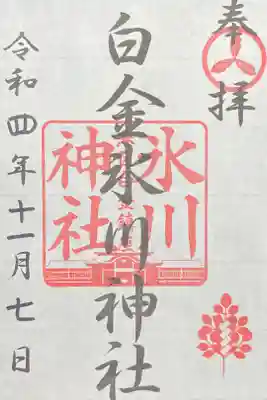 奉拝
白金氷川神社
氷川
神社
令和四年十一月七日